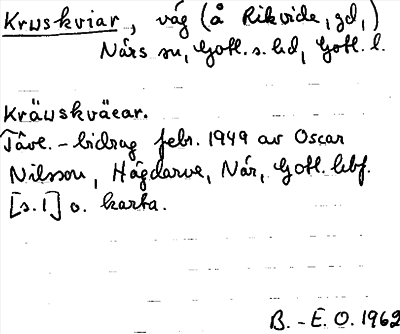 Kruskviar, väg (å Rikvide, gd,)
Närs sn, Gotl. s. hd, Gotl. l.
Kräuskväcar.
Tävl.-bidrag febr. 1949 av Oscar
Nilsson, Hägdarve, När, Gotl. lbf.
[s. 1] o. karta.
B.-E.O. 1962